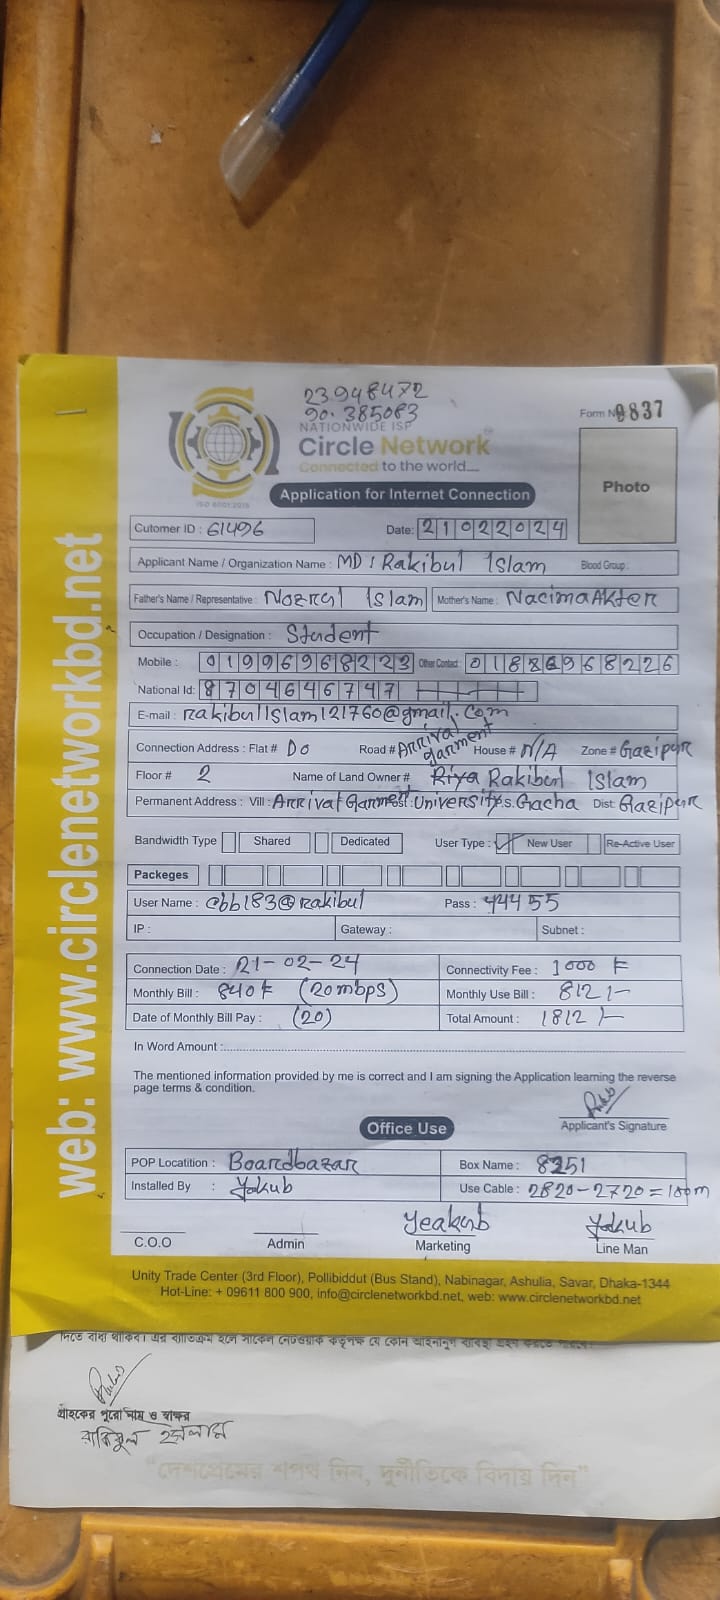 23948472
90.385083
NATIONWIDE ISP
Form No 0837
Circle Network
Connected to the world....
ISO 9001:2015
Application for Internet Connection
Photo
Cutomer ID : 61496 Date: 21022024
Applicant Name / Organization Name : MD : Rakibul Islam Blood Group :
Father's Name / Representative : Islam Mother's Name : Nacima Akter
Occupation / Designation : Student
Mobile : Other Contact:
National Id: 8704646747
E-mail : rakibulislam121760@gmail.com
Connection Address : Flat # Do Road # Arrival garment House # N/A Zone # Gazipur
Floor # 2 Name of Land Owner # Rakibul Islam
Permanent Address : Vill : Arrival Garment University P.S. Gacha Dist: Gazipur
Bandwidth Type Shared Dedicated User Type : New User Re-Active User
Packeges
User Name : cbb183@rakibul Pass : 44455
IP : Gateway : Subnet :
Connection Date : 21-02-24 Connectivity Fee : 1000 ৳
Monthly Bill : 840 ৳ (20mbps) Monthly Use Bill : 812 /-
Date of Monthly Bill Pay : (20) Total Amount : 1812 /-
In Word Amount :
The mentioned information provided by me is correct and I am signing the Application learning the reverse
page terms & condition.
Office Use
Applicant's Signature
POP Locatition : Boardbazar Box Name : 8251
Installed By : Yakub Use Cable : 2820-2720=100m
Yeakub Yakub
C.O.O Admin Marketing Line Man
Unity Trade Center (3rd Floor), Pollibiddut (Bus Stand), Nabinagar, Ashulia, Savar, Dhaka-1344
Hot-Line: + 09611 800 900, info@circlenetworkbd.net, web: www.circlenetworkbd.net
web: www.circlenetworkbd.net
গ্রাহকের পুরো নাম ও স্বাক্ষর
রাকিবুল ইসলাম
"দেশপ্রেমের শপথ নিন, দুর্নীতিকে বিদায় দিন"